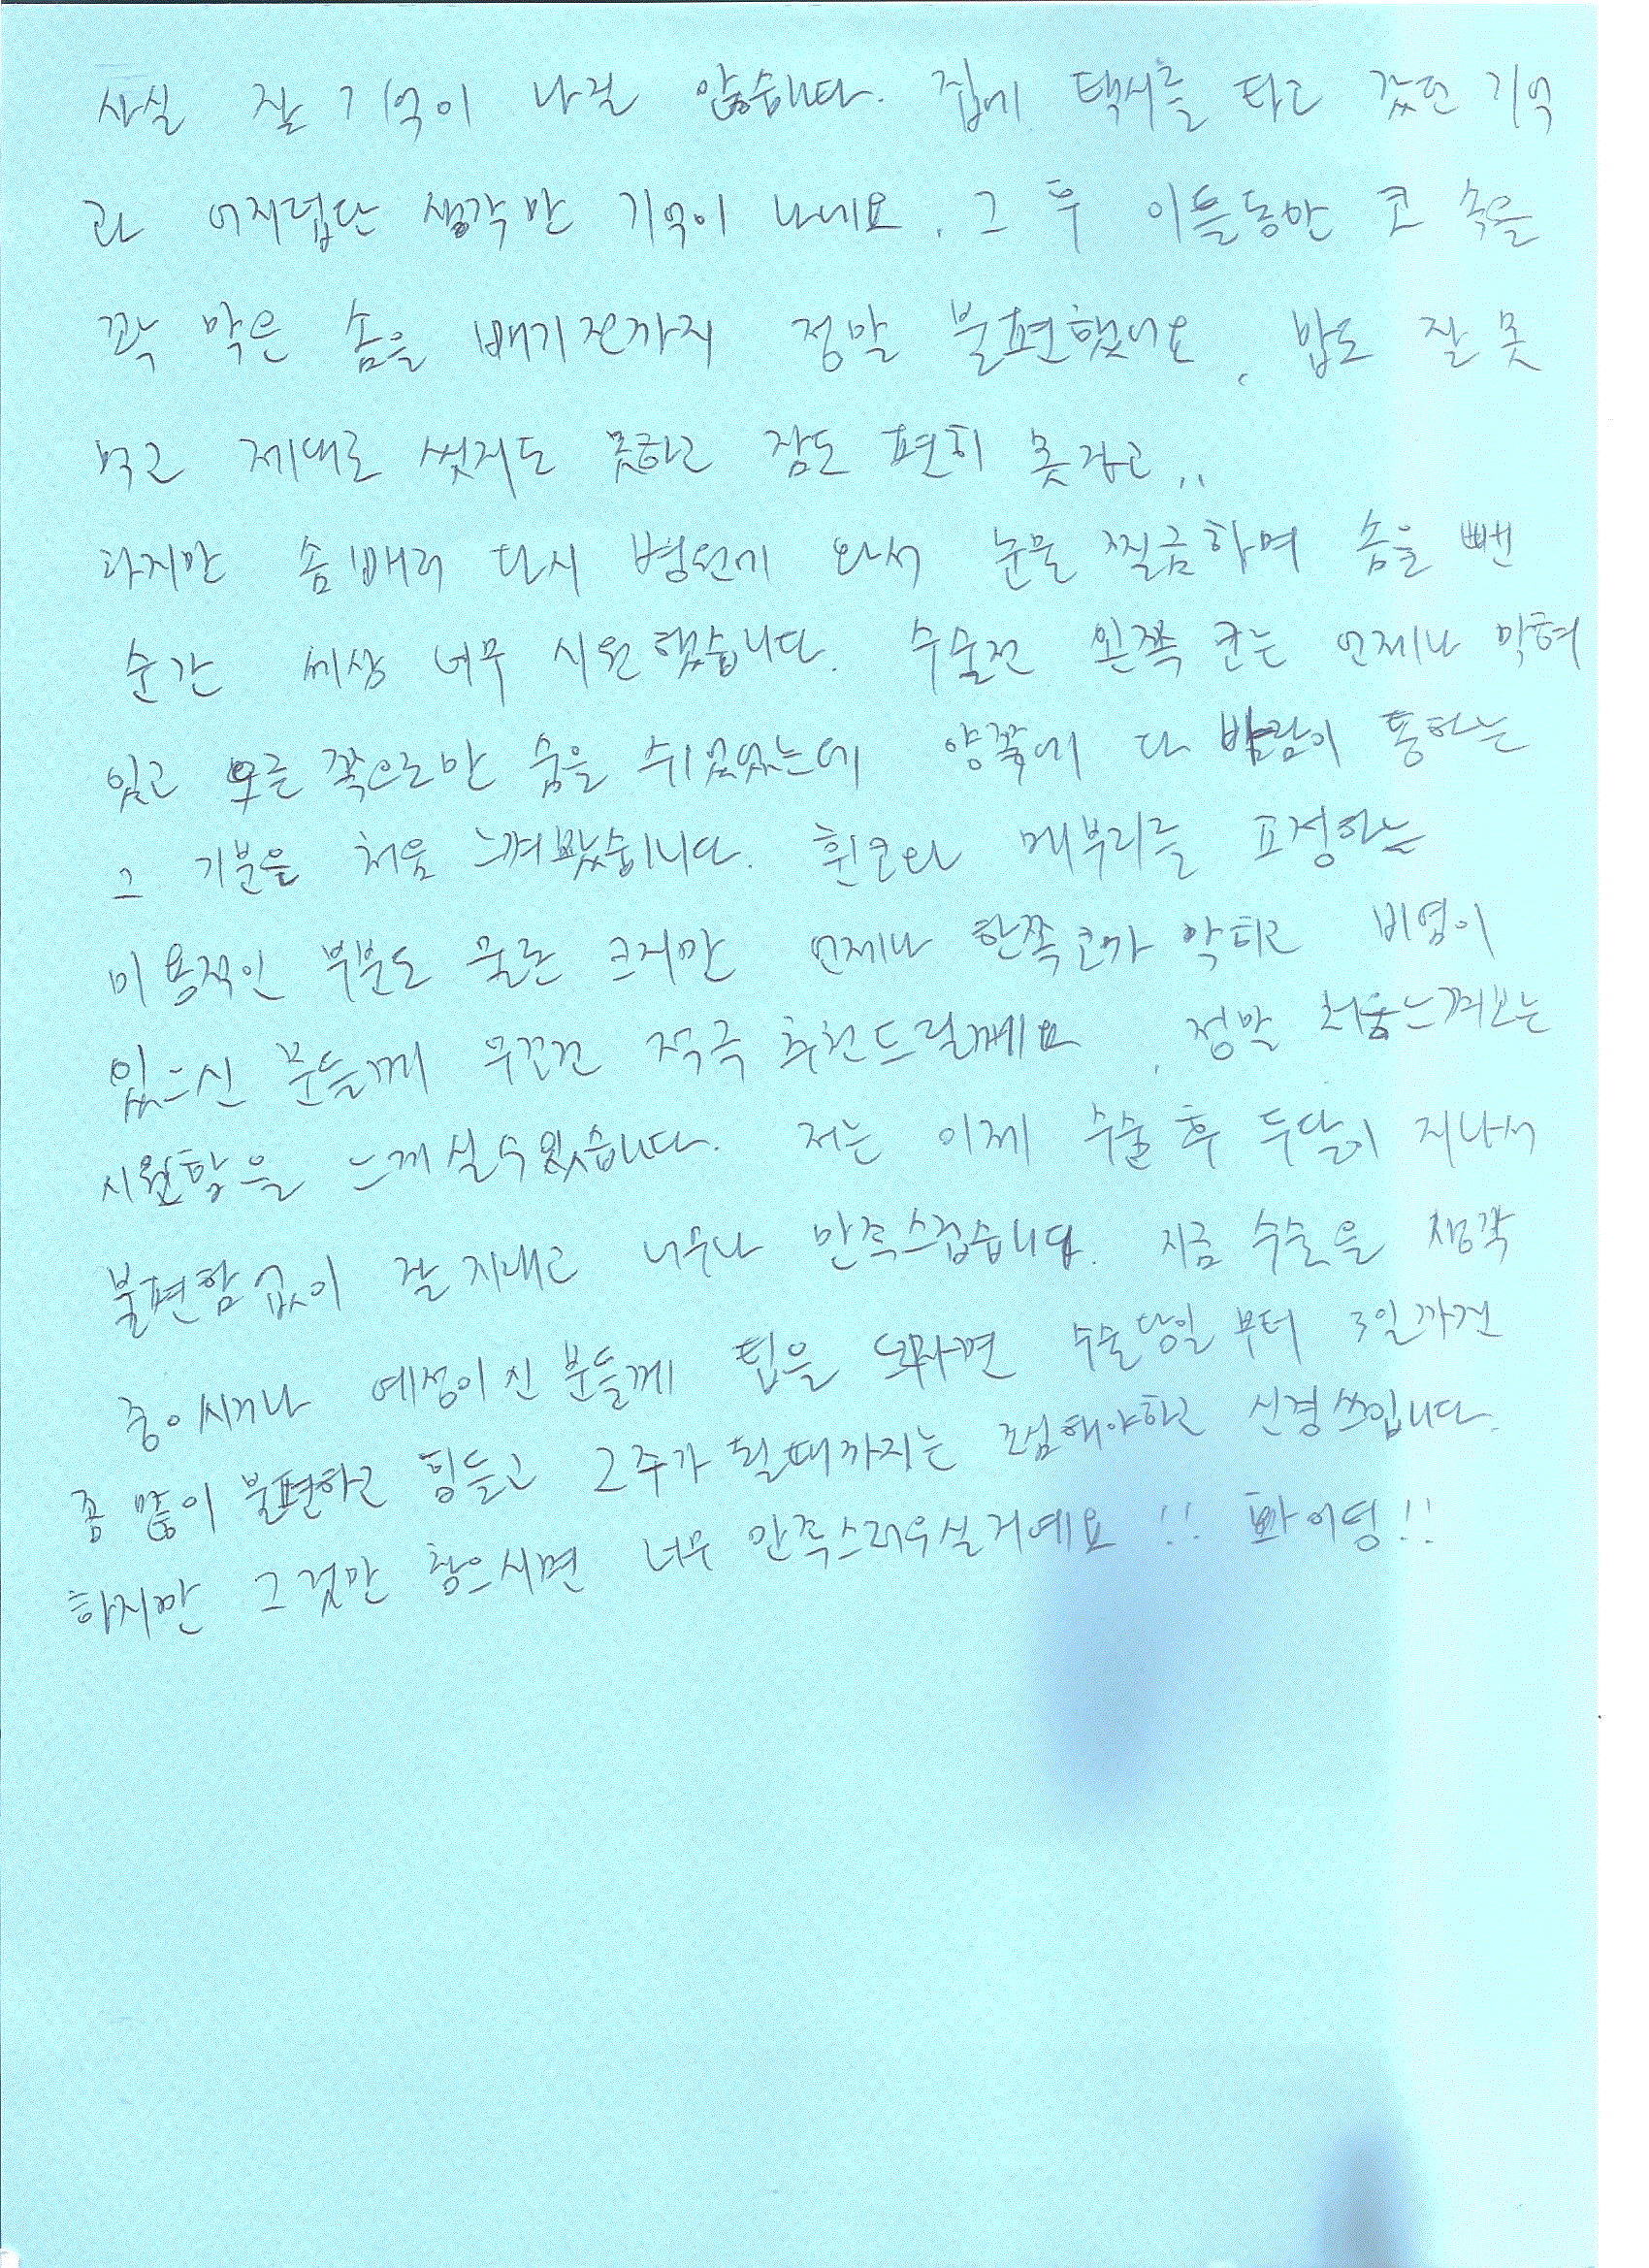 사실 잘 기억이 나질 않습니다. 집에 택시를 타고 갔던 기억
과 어지럽단 생각만 기억이 나네요. 그 후 이틀동안 코 속을
꽉 막은 솜을 빼기전까지 정말 불편했네요. 밥도 잘 못
먹고 제대로 씻지도 못하고 잠도 편히 못자고..
하지만 솜빼러 다시 병원에 와서 눈물 찔금하며 솜을 뺀
순간 세상 너무 시원했습니다. 수술전 왼쪽 코는 언제나 막혀
있고 오른쪽으로만 숨을 쉬었었는데 양쪽에 다 바람이 통하는
그 기분을 처음 느껴봤습니다. 휜코와 메부리를 교정하는
미용적인 부분도 물론 크지만 언제나 한쪽코가 막히고 비염이
있으신 분들께 무조건 적극 추천드릴께요. 정말 처음느껴보는
시원함을 느끼실수있습니다. 저는 이제 수술후 두달이 지나서
불편함없이 잘 지내고 너무나 만족스럽습니다. 지금 수술을 생각
중이시거나 예정이신 분들께 팁을 드리자면 수술당일부터 3일까진
좀 많이 불편하고 힘들고 2주가 될때까지는 조심해야하고 신경쓰입니다.
하지만 그것만 참으시면 너무 만족스러우실거예요!! 화이팅!!